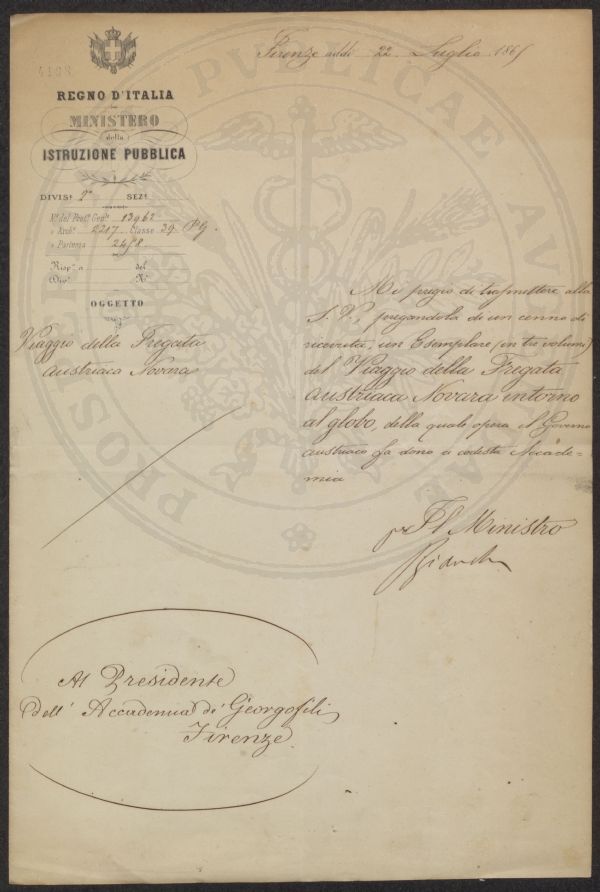 Firenze addì 22 Luglio 1865
REGNO D'ITALIA
MINISTERO
della
ISTRUZIONE PUBBLICA
DIVISe 2a SEZe
No del Prot. Genle 13962
» Archo 2217 Classe 39 PG.
» Partenza 2458
Rispta a del
Dive No
OGGETTO
Viaggio della Fregata
austriaca Novara
Mi pregio di trasmettere alla
S. V., pregandola di un cenno di
ricevuta, un Esemplare (in tre volumi)
del Viaggio della Fregata
austriaca Novara intorno
al globo, della quale opera il Governo
austriaco fa dono a codesta Accade=
mia
per Il Ministro
Bianchi
Al Presidente
dell' Accademia de' Georgofili
Firenze
PROSPERITATI PVBLICAE AVGENDAE